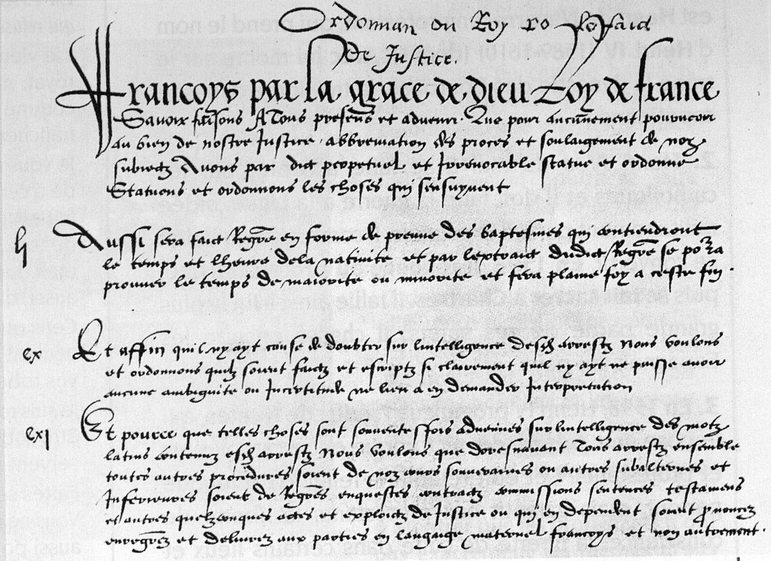 Ordonnan du Roy sur le faict
De Justice.
Francoys par la grace de dieu Roy de france
Savoir faisons A Tous presens et advenir. Que pour aucunement pourveoir
au bien de nostre Justice abbreviation des proces et soulagement de noz
subiectz Avons par edict perpetuel et Irrevocable statue et ordonne
Statuons et ordonnons les choses qui sensuyvent
li Aussi sera faict Regrẽ en forme de preuve des baptesmes qui contiendront
le temps et lheure de la nativite et par lextraict dudict Regrẽ se porra
prouver le temps de maiorite ou minorite et fera plaine foy a ceste fin.
cx Et affin quil ny ayt cause de doubter sur lintelligence desdz arrestz Nous voulons
et ordonnons quilz soient faictz et escriptz si clairement quil ny ayt ne puisse avoir
aucune ambiguite ou Incertitude ne lieu a en demander Interpretation
cxi Et pource que telles choses sont souventesfois advenues sur lintelligence des motz
latins contenuz esdz arrestz Nous voulons que doresnavant Tous arrestz ensemble
toutes autres procedures soient de noz cours souveraines ou autres subalternes et
Inferieures soient de Regrẽs enquestes contractz commissions sentences testamens
et autres quelzconques actes et exploictz de Justice ou qui en dependent soient prononcez
enregrez et delivrez aux parties en langaige maternel francoys et non autrement.